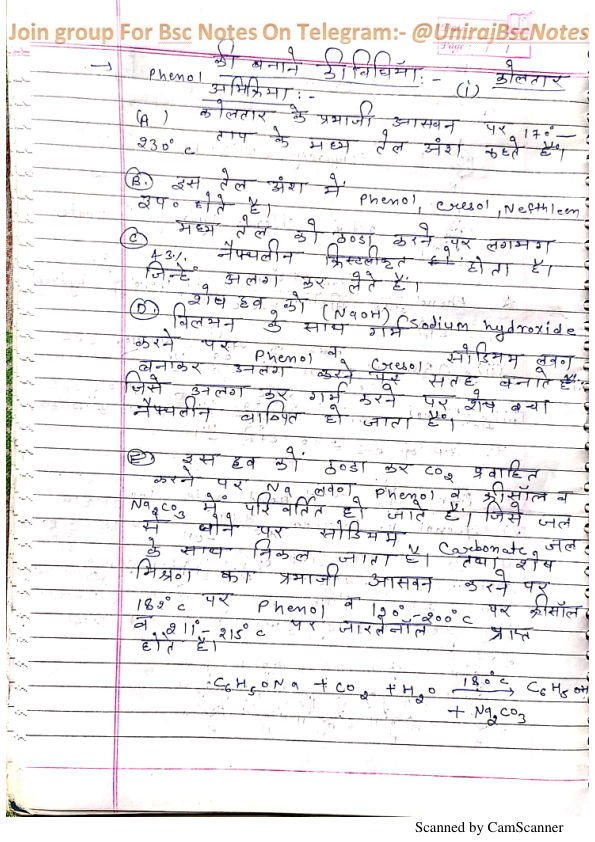 Join group For Bsc Notes On Telegram:- @UnirajBscNotes
Page :
→ Phenol को बनाने की विधियाँ :- (i) कोलतार
अभिक्रिया :-
(A) कोलतार के प्रभाजी आसवन पर 170°-
230°c ताप के मध्य तेल अंश कहते हैं।
(B.) इस तेल अंश में Phenol, Cresol, Nefthleen
उप० होते है।
(C) मध्य तेल को ठण्डा करने पर लगभग
43% नैफ्थलीन क्रिस्टलीकृत हो होता है।
जिन्हें अलग कर लेते हैं।
(D.) शेष द्रव को (NaOH) (Sodium hydroxide
विलयन के साथ गर्म
करने पर Phenol व Cresol सोडियम लवण
बनाकर अलग करने पर सतह बनाते हैं
जिसे अलग कर गर्म करने पर शेष बचा
नैफ्थलीन वाष्पित हो जाता है।
(E) इस द्रव को ठण्डा कर CO2 प्रवाहित
करने पर Na लवण Phenol व क्रीसॉल व
Na2CO3 में परिवर्तित हो जाते हैं। जिसे जल
से धोने पर सोडियम Carbonate जल
के साथ निकल जाता है। तथा शेष
मिश्रण का प्रभाजी आसवन करने पर
182°c पर Phenol व 190°-200°c पर क्रीसॉल
व 211°-215°c पर प्राप्त
होते है।
C6H5ONa + CO2 + H2O 180°c → C6H5OH
+ Na2CO3
Scanned by CamScanner